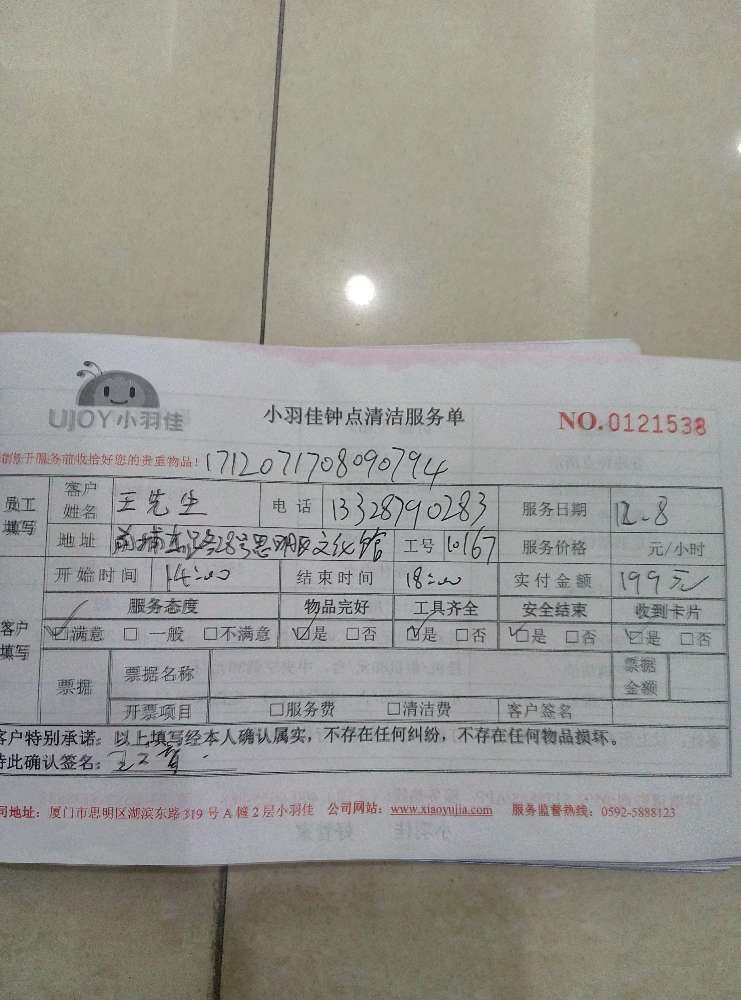 UJOY小羽佳 小羽佳钟点清洁服务单 NO.0121538
开服务前收拾好您的贵重物品! 1712071708090794
员工填写 客户姓名 王先生 电话 13328790283 服务日期 12.8
地址 前埔东路28号思明区文化馆 工号 10167 服务价格 元/小时
开始时间 14:00 结束时间 18:00 实付金额 199元
客户填写 服务态度 物品完好 工具齐全 安全结束 收到卡片
☑满意 □一般 □不满意 ☑是 □否 ☑是 □否 ☑是 □否 ☑是 □否
票据 票据名称 票据金额
开票项目 □服务费 □清洁费 客户签名
客户特别承诺：以上填写经本人确认属实，不存在任何纠纷，不存在任何物品损坏。
特此确认签名：
司地址：厦门市思明区湖滨东路319号A幢2层小羽佳 公司网站：www.xiaoyujia.com 服务监督热线：0592-5888123